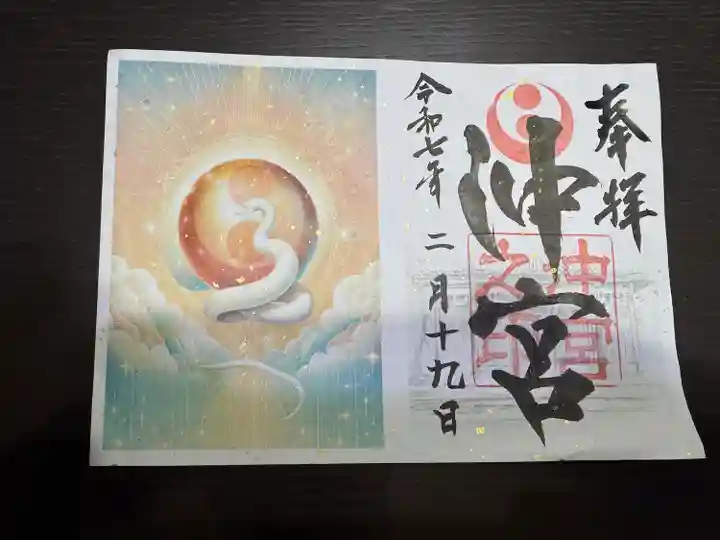 奉拝
沖宮
沖宮
之印
令和七年 二月十九日